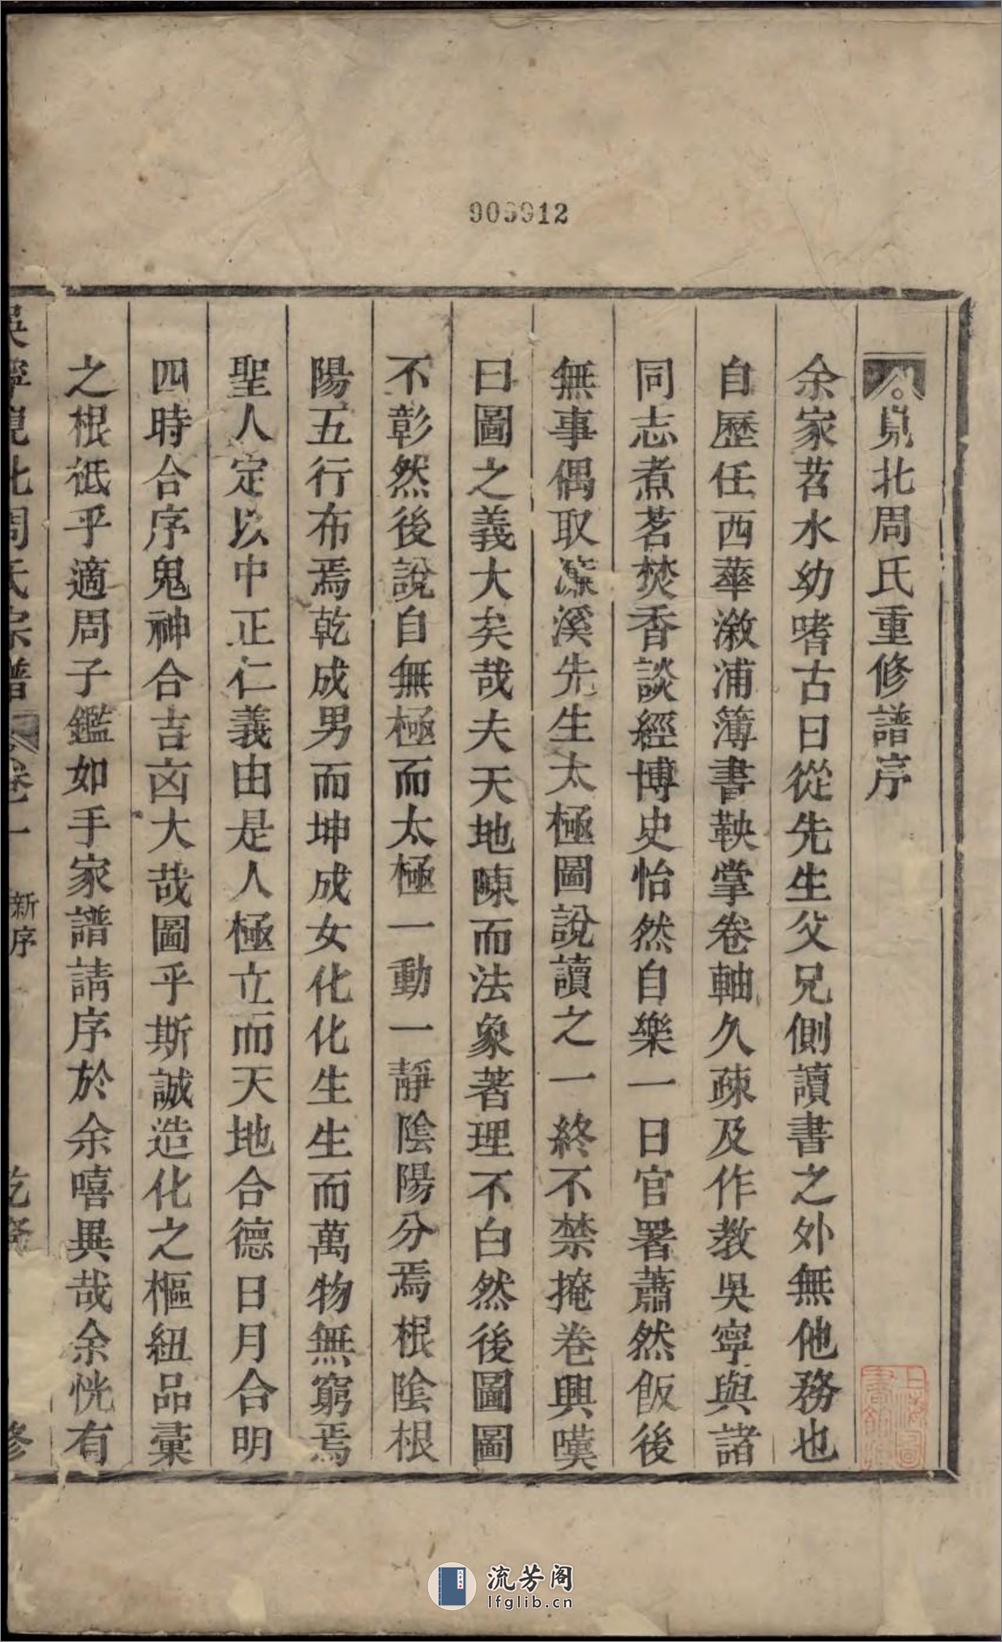 909912
峴北周氏重修譜序
余家苕水幼嗜古日從先生父兄側讀書之外無他務也
自歷任西華漵浦簿書鞅掌卷軸久疎及作教吳寧與諸
同志煮茗焚香談經博史怡然自樂一日官署蕭然飯後
無事偶取濂溪先生太極圖說讀之一終不禁掩卷興嘆
曰圖之義大矣哉夫天地陳而法象著理不白然後圖圖
不彰然後說自無極而太極一動一靜陰陽分焉根陰根
陽五行布焉乾成男而坤成女化化生生而萬物無窮焉
聖人定以中正仁義由是人極立而天地合德日月合明
四時合序鬼神合吉凶大哉圖乎斯誠造化之樞紐品彙
之根柢乎適周子鑑如手家譜請序於余嘻異哉余恍有
吳寧峴北周氏宗譜 卷一 新序 乾隆 修
上海圖書館藏
流芳阁
lfglib.cn